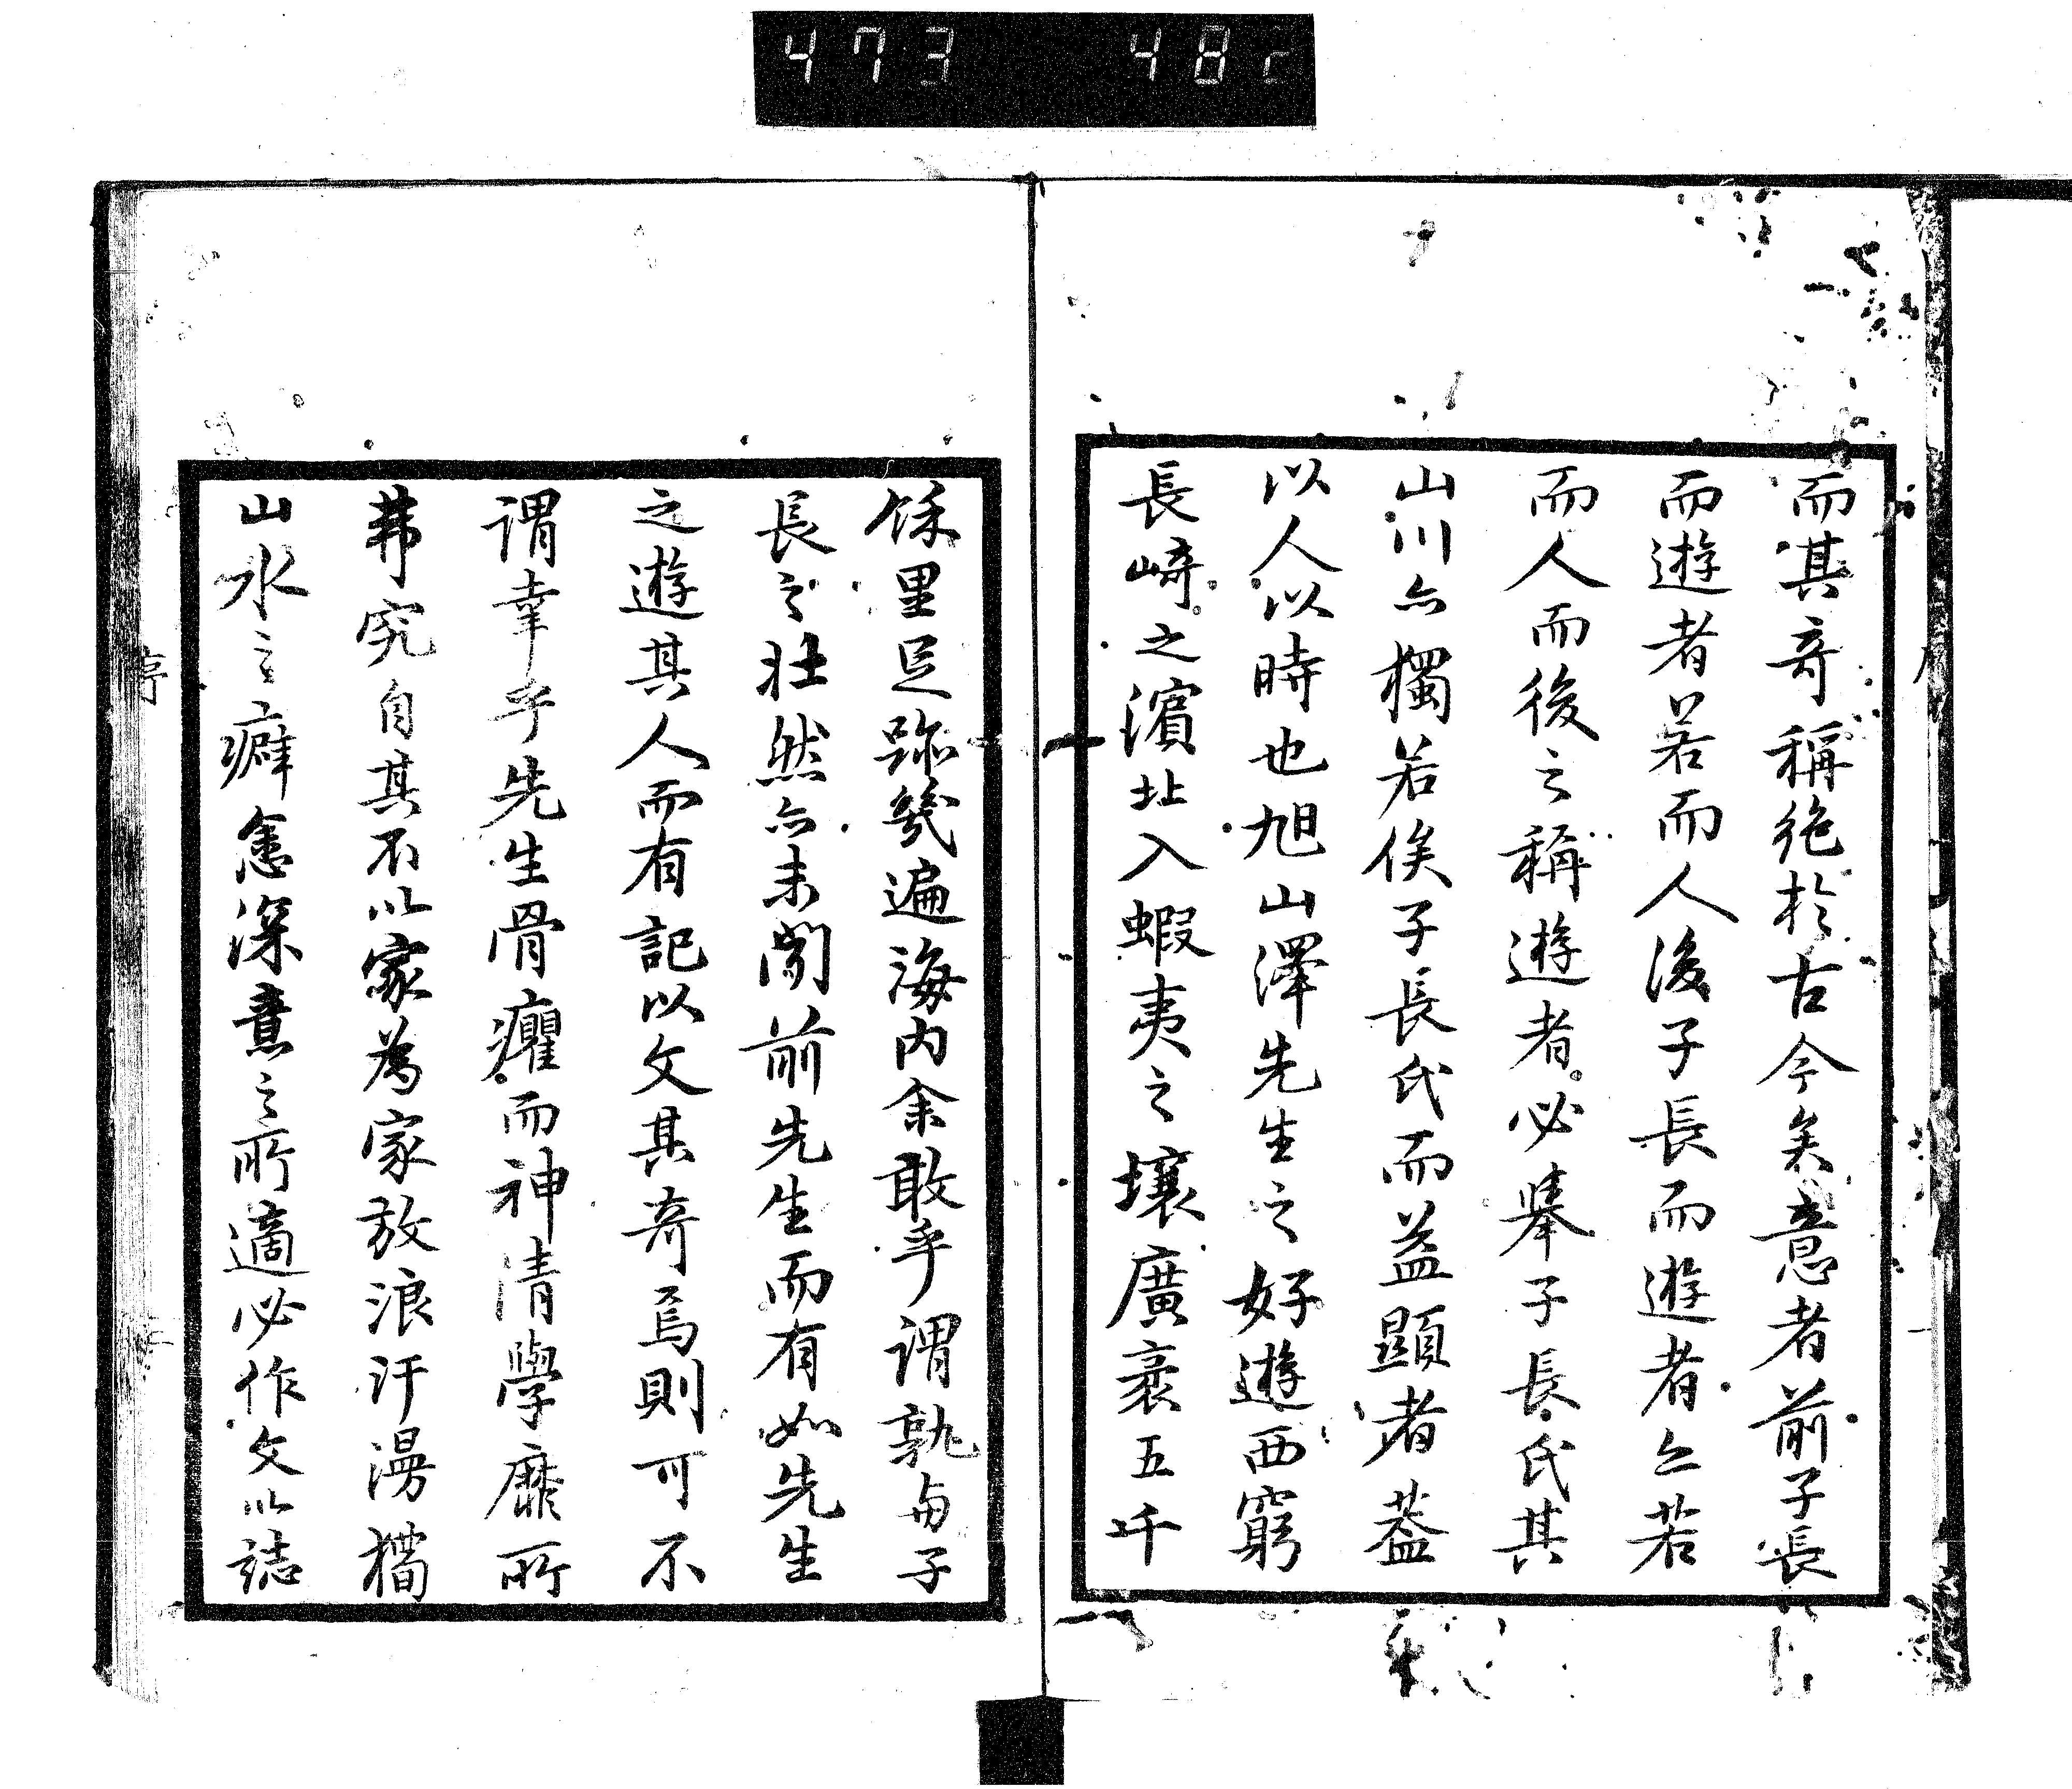 473 48
而其奇稱絶於古今矣意者前子長
而遊者若而人後子長而遊者亦若
而人而後之稱遊者必擧子長氏其
山川亦獨若俟子長氏而益顯者蓋
以人以時也旭山澤先生之好遊西窮
長崎之濵北入蝦夷之壤廣袤五千
餘里足跡幾遍海内余敢乎謂孰与子
長之壮然亦未聞前先生而有如先生
之遊其人而有記以文其奇焉則可不
謂幸乎先生骨癯而神清學靡所
弗究自其不以家為家放浪汗漫
山水之癖愈深意之所適必作文以誌